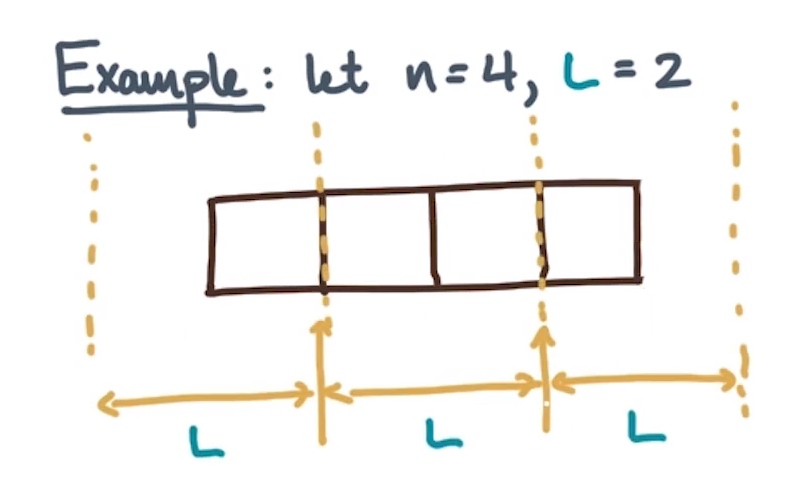 Example: let n=4, L=2
L
L
L